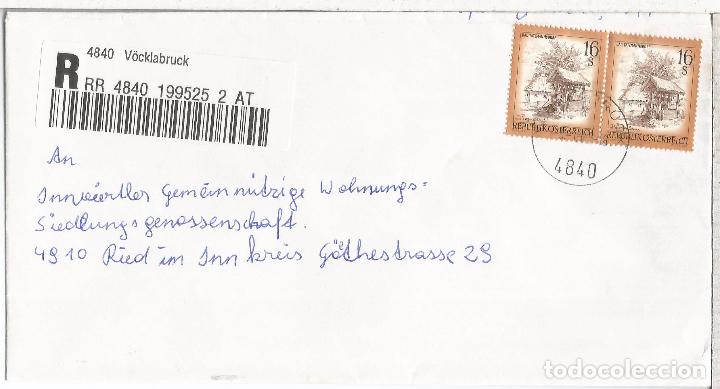 R
4840 Vöcklabruck
RR 4840 199525 2 AT
16 S
REPUBLIK ÖSTERREICH
16 S
REPUBLIK ÖSTERREICH
4840
An
Innviertler Gemeinnützige Wohnungs=
Siedlungsgenossenschaft.
4910 Ried im Innkreis Göethestrasse 29
todocoleccion.net